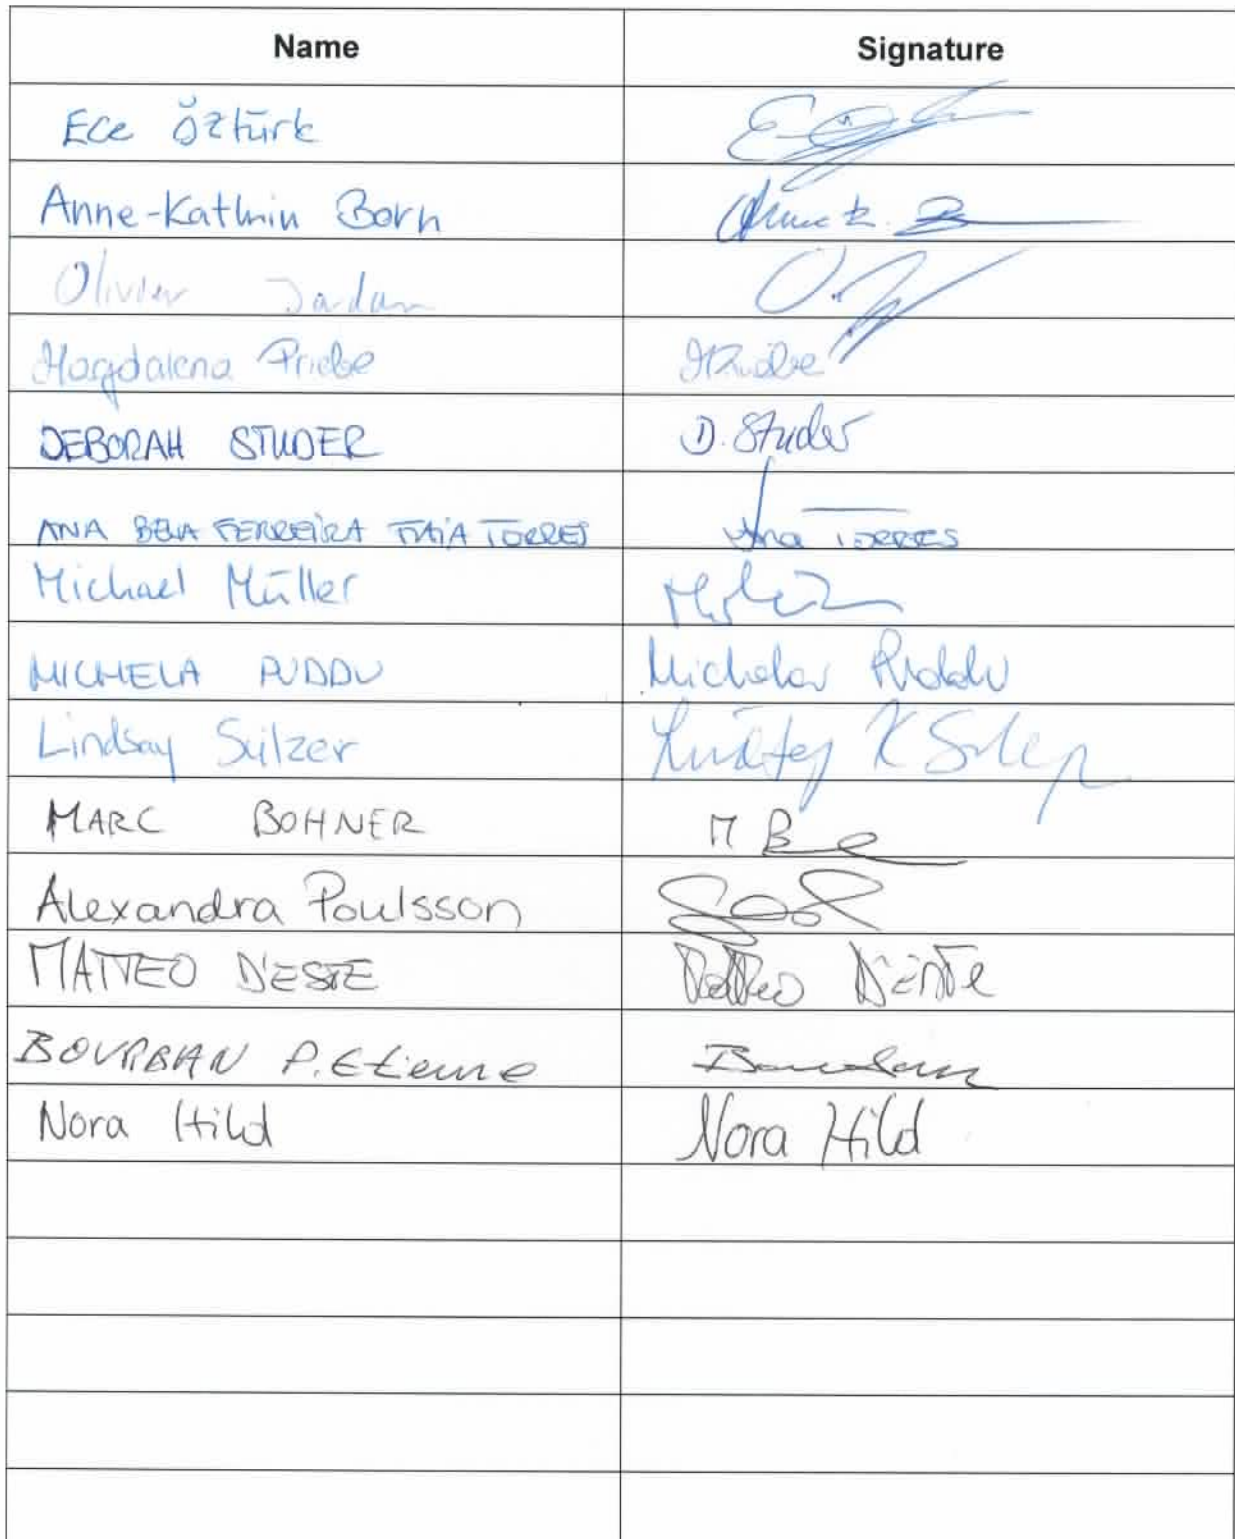 Name Signature
Ece Öztürk
Anne-Kathrin Born
Olivier Jordan
Magdalena Priebe
DEBORAH STUDER D. Studer
ANA BELA FERREIRA MAIA TORRES Ana TORRES
Michael Müller
MICHELA PUDDU Michela Puddu
Lindsay Sulzer
MARC BOHNER
Alexandra Poulsson
MATTEO D'ESTE Matteo D'Este
BOURBAN P.Etienne Bourban
Nora Hild Nora Hild